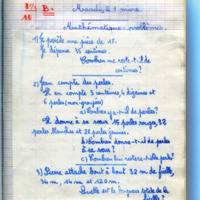 8½
10
B-
Mardi, le 1 mars.
Mathématique : problèmes.
1) Je possède une pièce de 1F.
Je dépense 35 centimes.
Combien me reste-t-il de
centimes ?
2) Jean compte des perles.
Il en compte 3 centaines, 4 dizaines et
6 perles (non-groupées)
a) Combien y a-t-il de perles ?
Il donne à sa sœur 15 perles rouges, 32
perles blanches et 28 perles jaunes.
b) Combien donne-t-il de perles
à sa sœur ?
c) Combien lui reste-t-il de perles ?
3) Pierre attache bout à bout 32 m de ficelle,
m, 14 m et 120 m.
Quelle est la longueur totale de la
ficelle ?